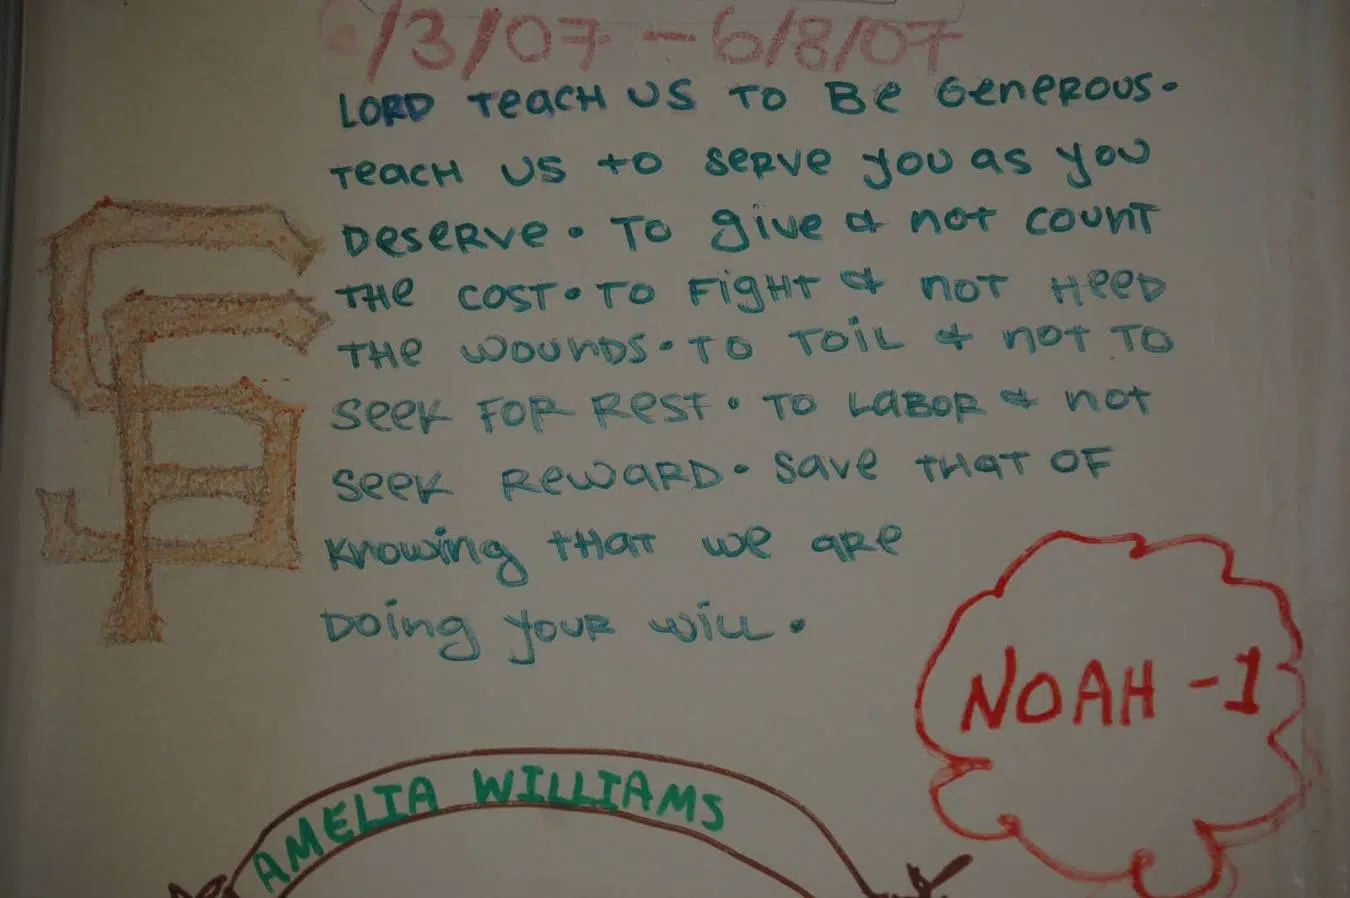 6/3/07 - 6/8/07
LORD TeacH US TO Be GeneROUS.
TeacH US to SeRVe you as you
DeseRve. To give & not count
THe COST. TO FigHT & noT HeeD
THe WOUnDS. TO TOiL & not TO
Seek FOR ResT. To LaBOR & not
Seek RewaRD. Save THaT OF
Knowing THaT we are
Doing your will.
SF
NOAH -1
AMELIA WILLIAMS